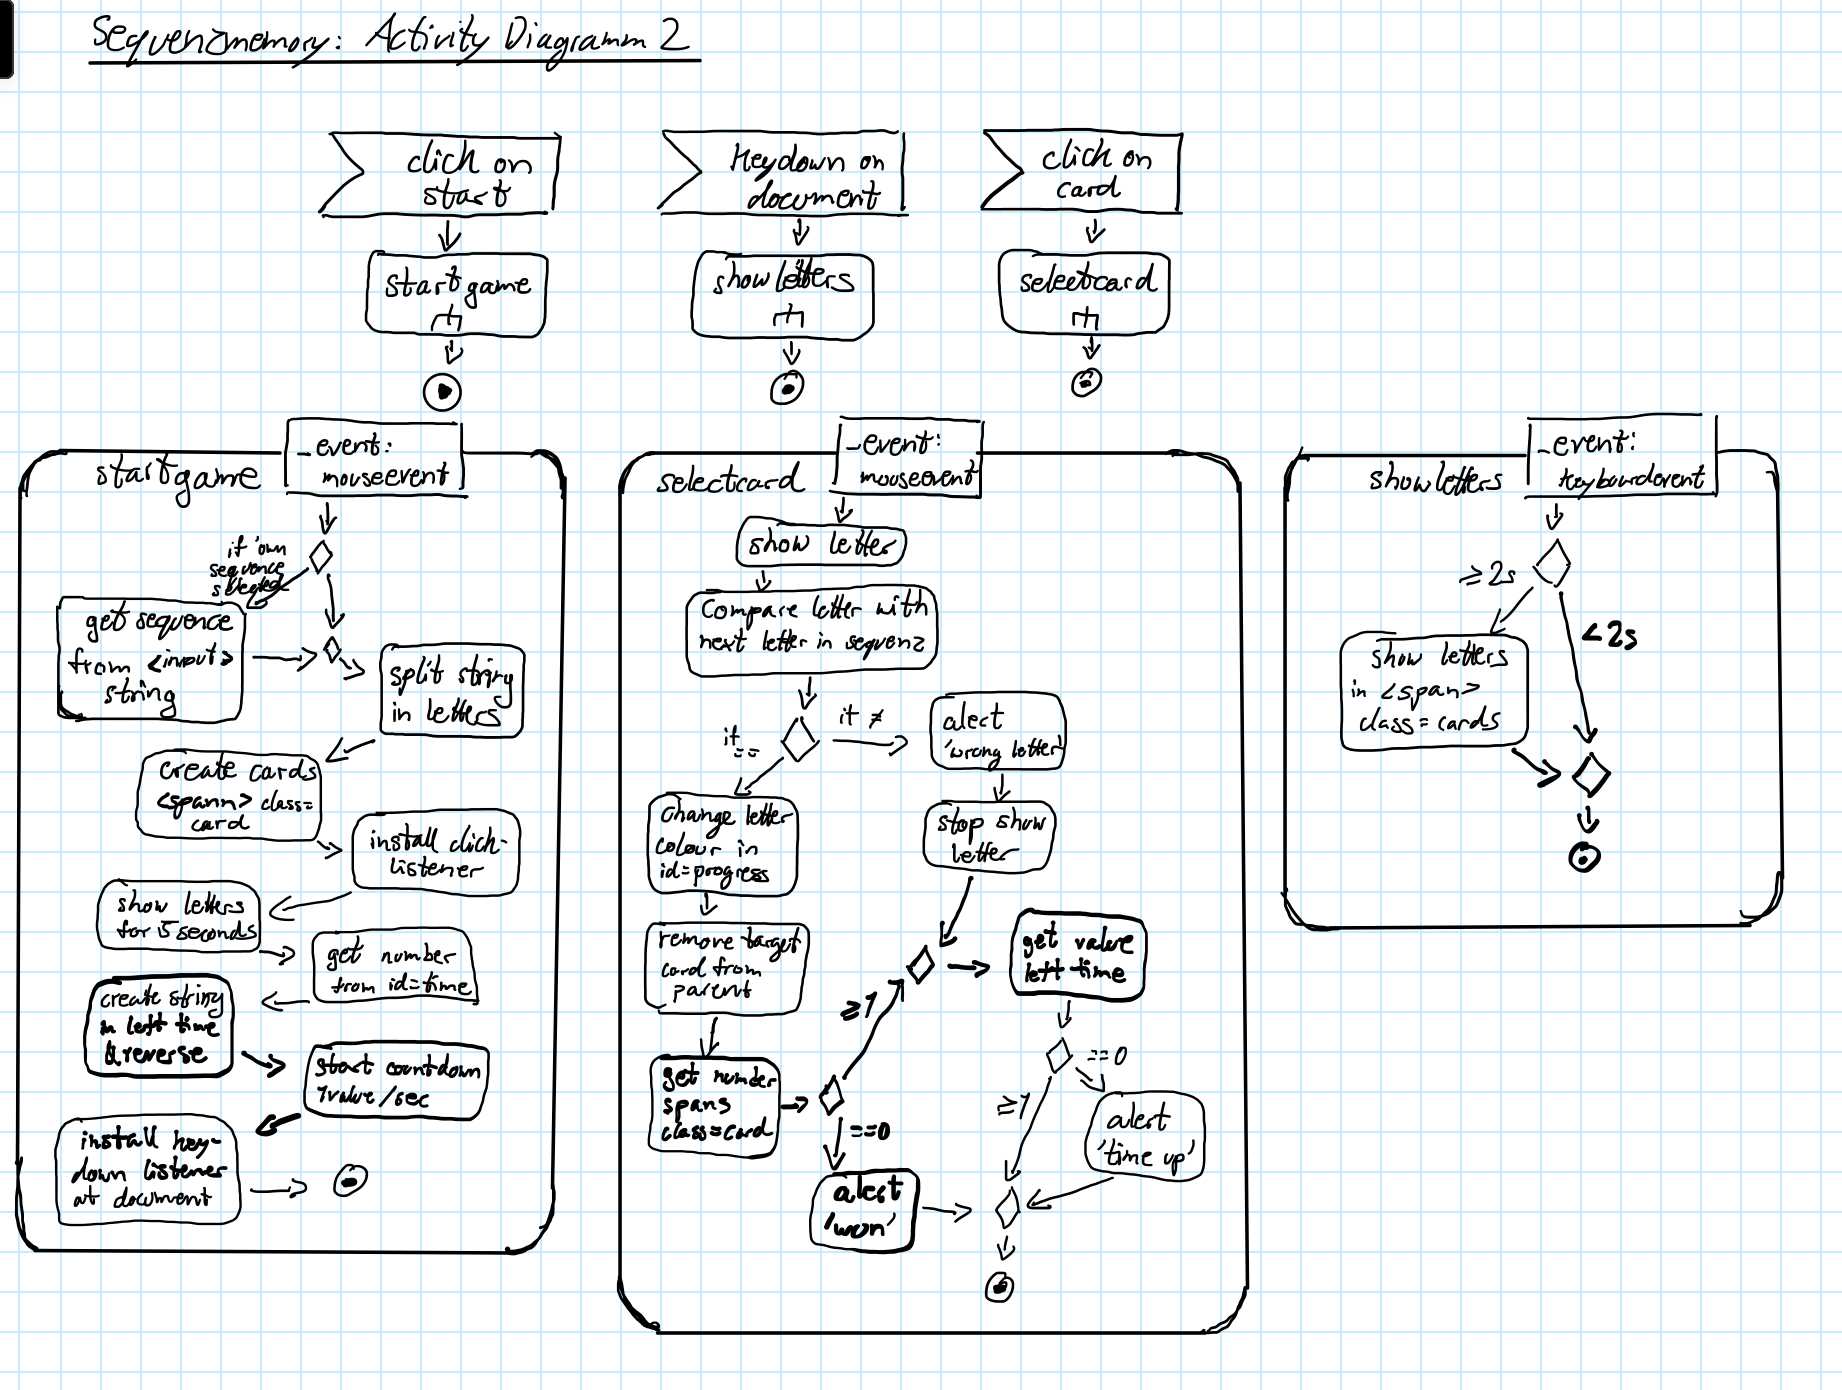 Sequenzmemory: Activity Diagramm 2
click on
start
Keydown on
document
click on
card
startgame
showletters
selectcard
startgame
_event:
mouseevent
if 'own
sequence
selected
get sequence
from <input>
string
split string
in letters
create cards
<spann> class=
card
install click-
listener
show letters
for 5 seconds
get number
from id=time
create string
in left time
& reverse
start countdown
1value/sec
install key-
down listener
at document
selectcard
_event:
mouseevent
show letter
Compare letter with
next letter in sequenz
if
==
if ≠
alert
'wrong letter'
change letter
colour in
id=progress
stop show
letter
remove target
card from
parent
get value
left time
≥1
get number
spans
class=card
==0
==0
≥1
alert
'time up'
alert
'won'
showletters
_event:
keyboardevent
≥2s
<2s
show letters
in <span>
class=cards